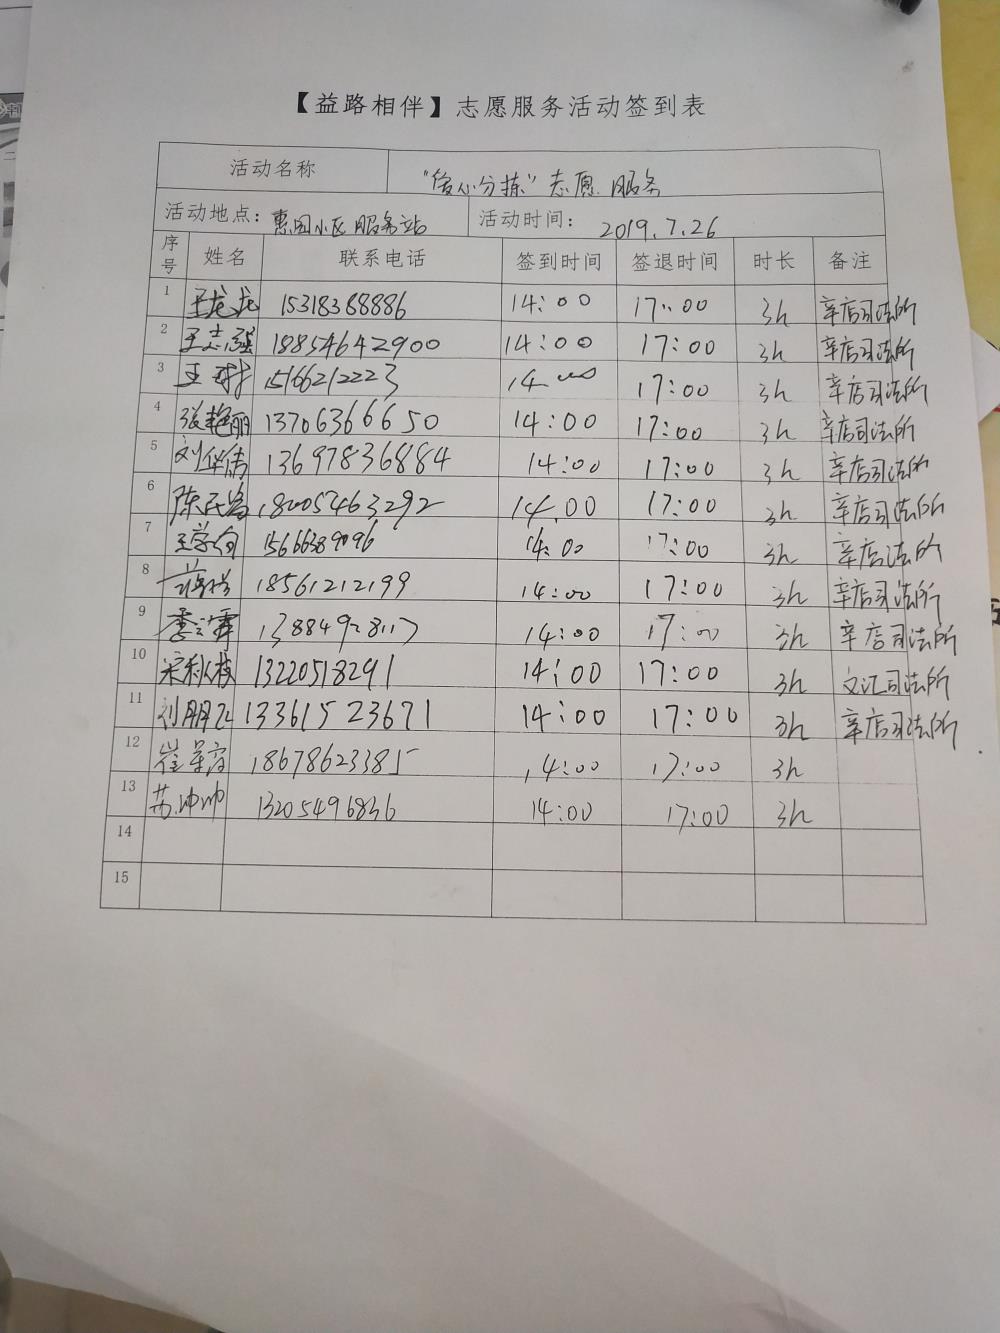 【益路相伴】志愿服务活动签到表
活动名称 "爱心分拣"志愿服务
活动地点：惠园小区服务站 活动时间：2019.7.26
序号 姓名 联系电话 签到时间 签退时间 时长 备注
1 王龙龙 15318388886 14:00 17:00 3h 辛店司法所
2 王志强 18854642900 14:00 17:00 3h 辛店司法所
3 王 15166212223 14:00 17:00 3h 辛店司法所
4 张艳丽 13706366650 14:00 17:00 3h 辛店司法所
5 刘华倩 13697836884 14:00 17:00 3h 辛店司法所
6 陈民 18005463292 14:00 17:00 3h 辛店司法所
7 王学 15666389096 14:00 17:00 3h 辛店法所
8 18561212199 14:00 17:00 3h 辛店司法所
9 14:00 17:00 3h 辛店司法所
10 宋秋枝 13220518291 14:00 17:00 3h 文汇司法所
11 刘朋飞 13361523671 14:00 17:00 3h 辛店司法所
12 崔 18678623385 14:00 17:00 3h
13 苏帅帅 13205496836 14:00 17:00 3h
14
15